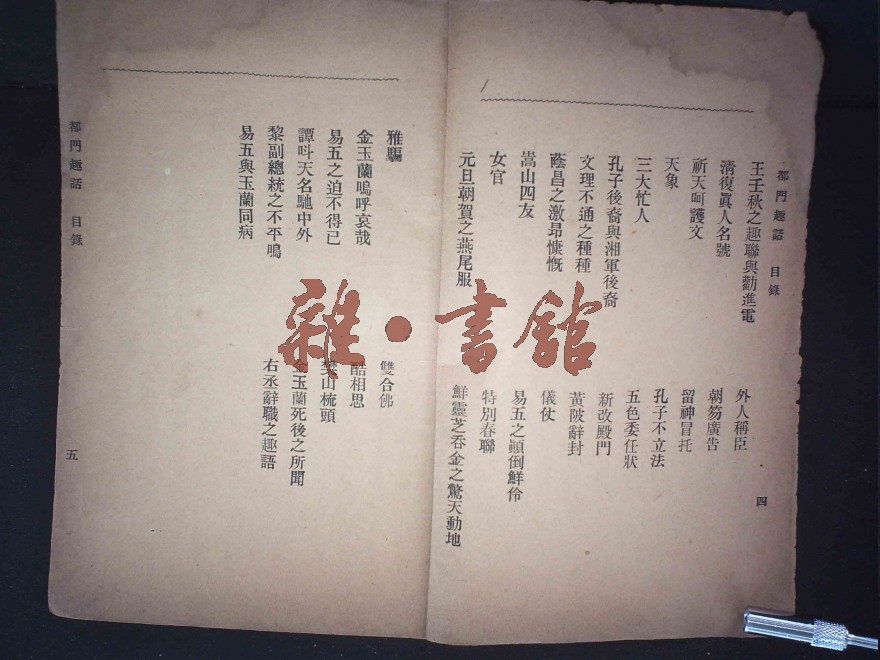 都門趣話 目錄
四
王壬秋之趣聯與勸進電
外人稱臣
清復眞人名號
朝笏廣告
祈天呵護文
留神冒托
天象
孔子不立法
三大忙人
五色委任狀
孔子後裔與湘軍後裔
新改殿門
文理不通之種種
黃陂辭封
蔭昌之激昂慷慨
儀仗
嵩山四友
易五之顚倒鮮伶
女官
特別春聯
元旦朝賀之燕尾服
鮮靈芝吞金之驚天動地
雅騙
雙合佛
金玉蘭嗚呼哀哉
酷相思
易五之迫不得已
樊山梳頭
譚呌天名馳中外
金玉蘭死後之所聞
黎副總統之不平鳴
右丞辭職之趣語
易五與玉蘭同病
都門趣話 目錄
五
雜·書館